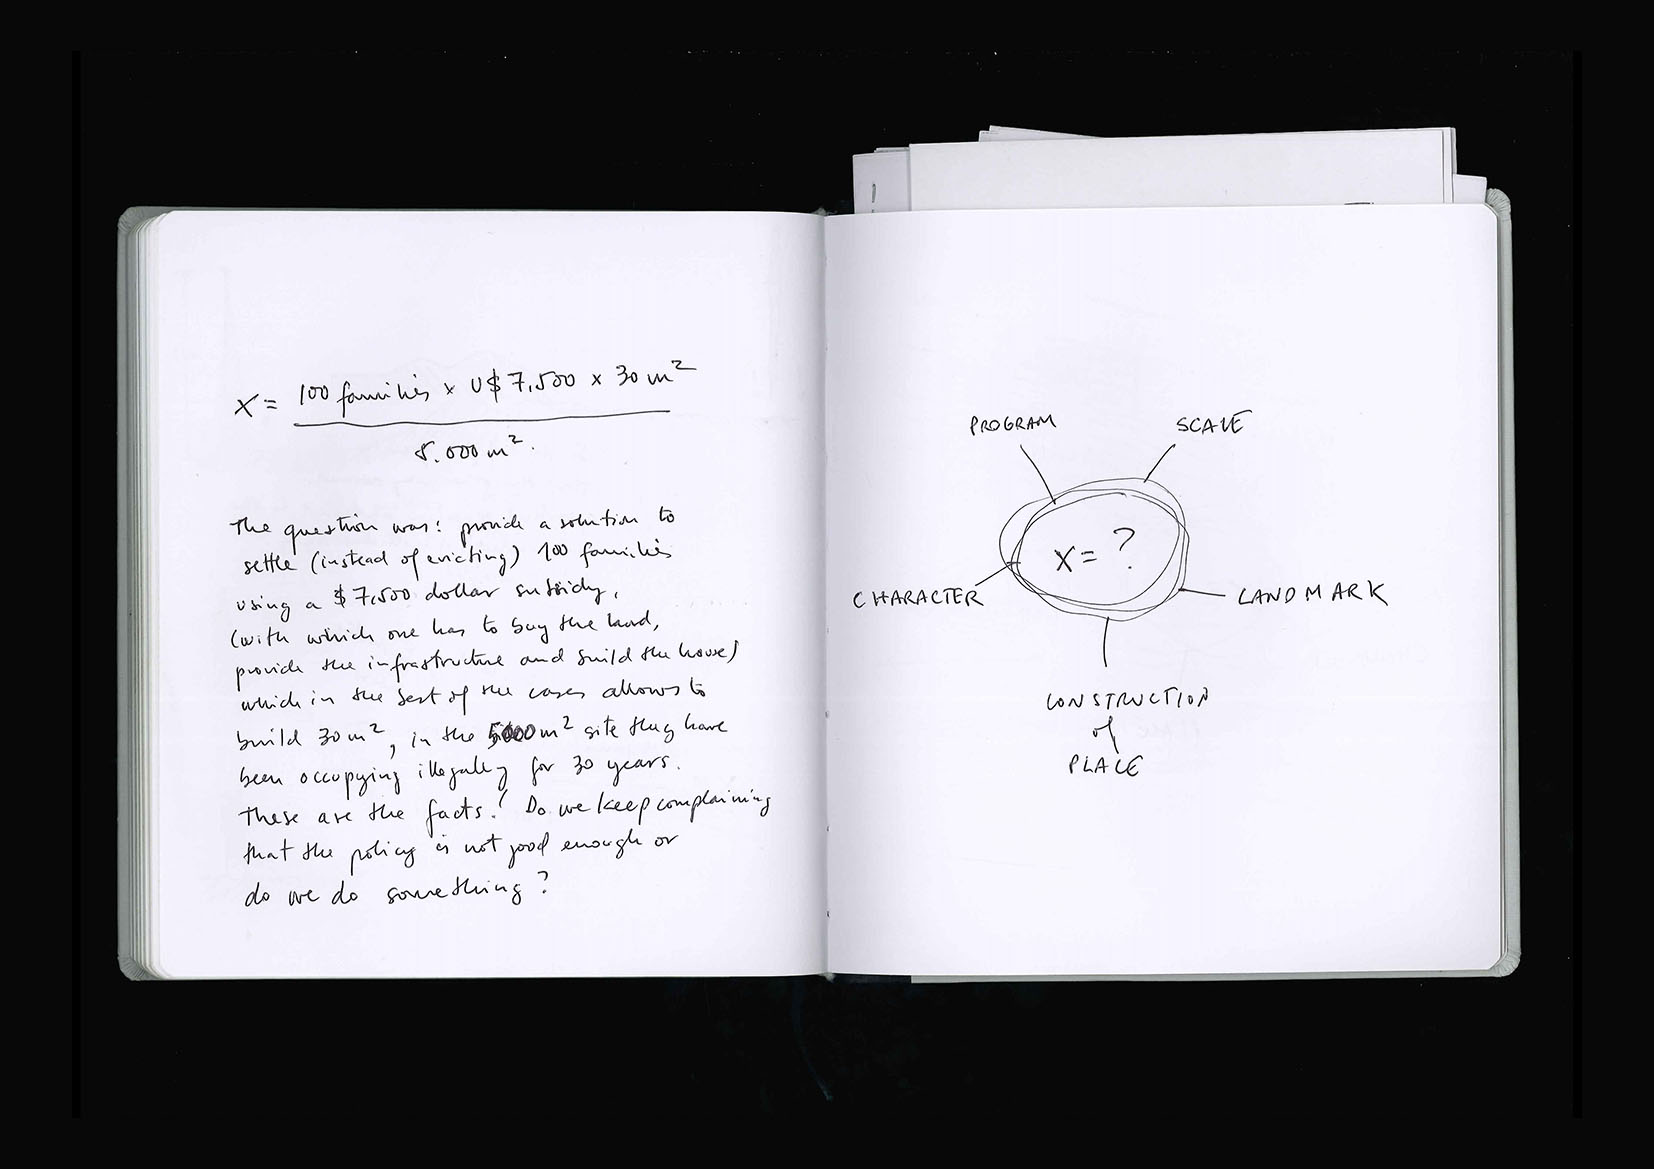 X = 100 families x U$ 7,500 x 30 m²
5.000 m².
The question was: provide a solution to
settle (instead of evicting) 100 families
using a $ 7,500 dollar subsidy,
(with which one has to buy the land,
provide the infrastructure and build the house)
which in the best of the cases allows to
build 30 m², in the 5000 m² site they have
been occupying illegally for 30 years.
These are the facts! Do we keep complaining
that the policy is not good enough or
do we do something?
PROGRAM
SCALE
X = ?
CHARACTER
LANDMARK
CONSTRUCTION
of
PLACE